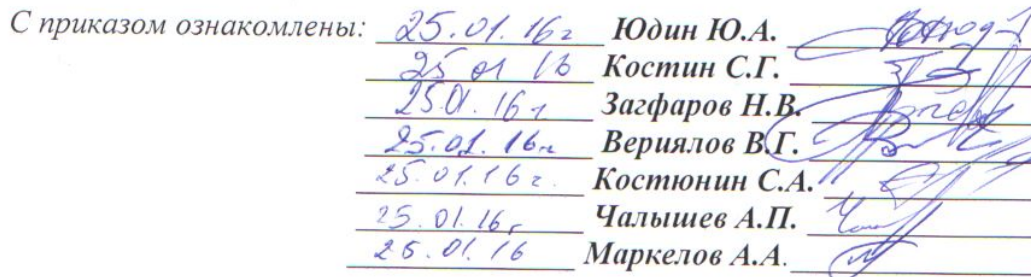 С приказом ознакомлены: 25.01.16г Юдин Ю.А.
25 01 16 Костин С.Г.
25.01.16г Загфаров Н.В.
25.01.16г Вериялов В.Г.
25.01.16г. Костюнин С.А.
25.01.16г Чалышев А.П.
25.01.16 Маркелов А.А.